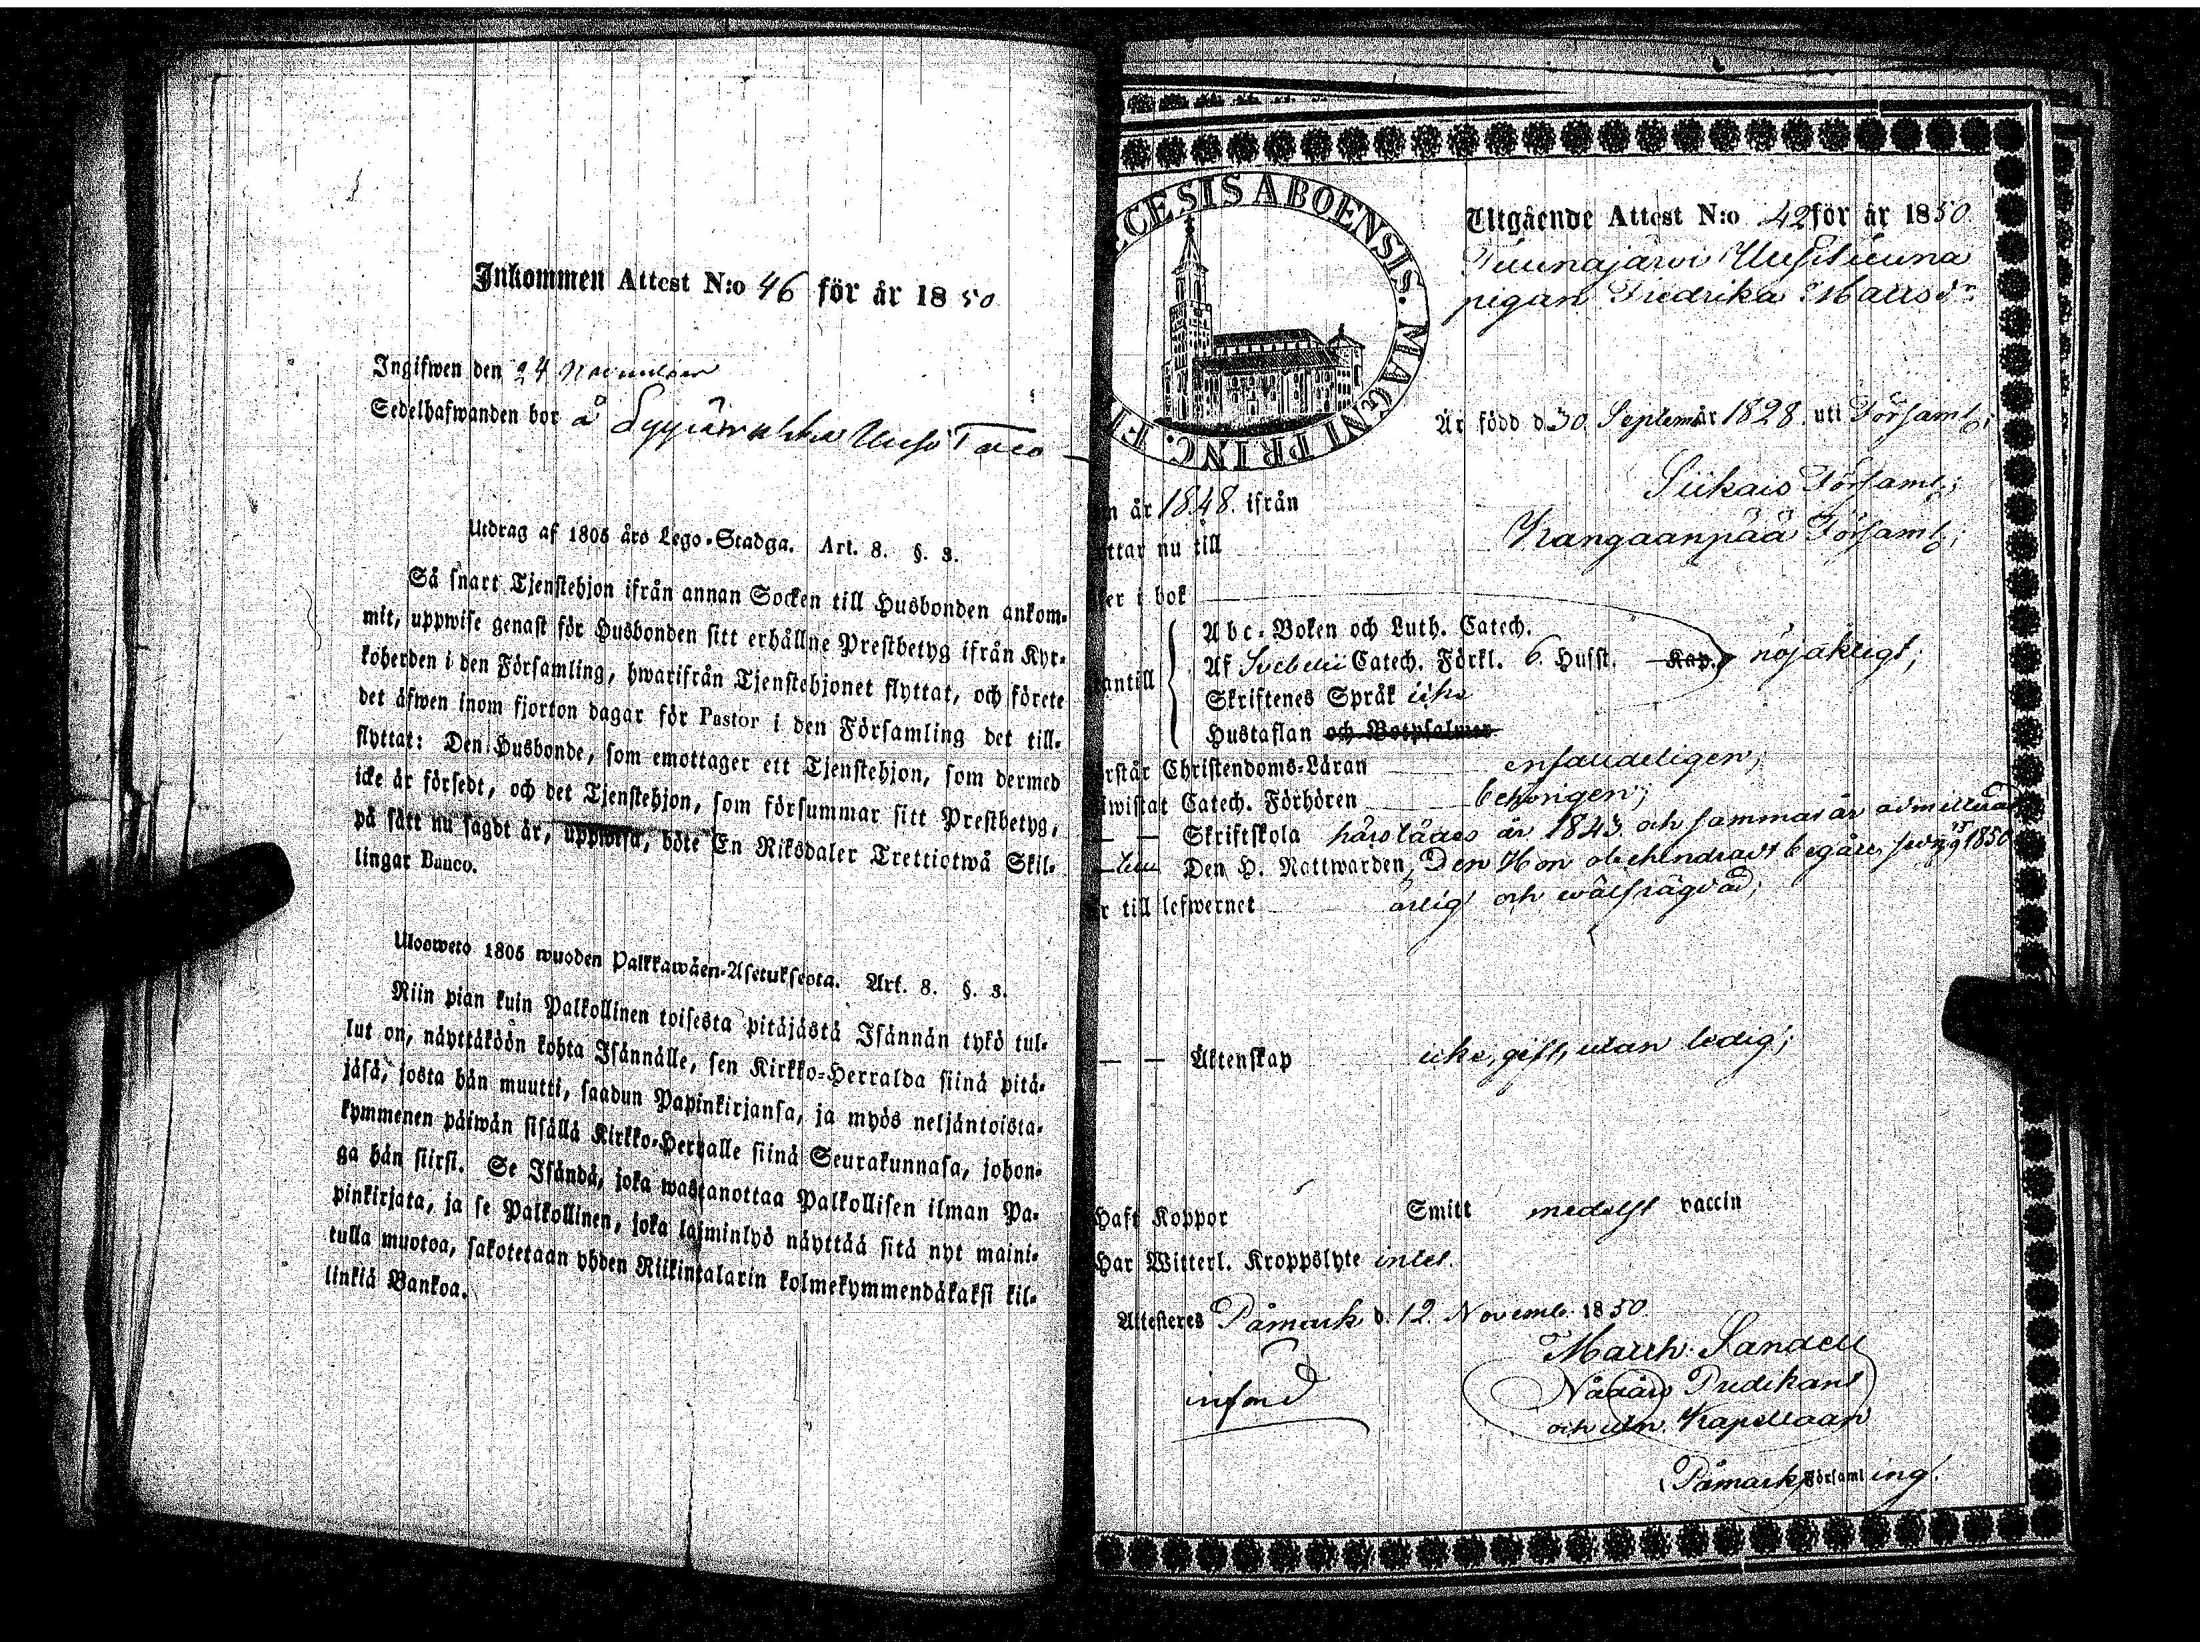 Inkommen Attest N:o 46 för år 1850
Ingifwen den 24 November
Sedelhafwanden bor å
Utdrag af 1805 års Lego-Stadga. Art. 8. §. 3.
Så snart Tjenstehjon ifrån annan Socken till Husbonden ankom-
mit, uppwise genast för Husbonden sitt erhållne Prestbetyg ifrån Kyr-
koherden i den Församling, hwarifrån Tjenstehjonet flyttat, och förete
det äfwen inom fjorton dagar för Pastor i den Församling det till-
flyttat: Den Husbonde, som emottager ett Tjenstehjon, som dermed
icke är försedt, och det Tjenstehjon, som försummar sitt Prestbetyg,
på sätt nu sagdt är, uppwisa, böte En Riksdaler Trettiotwå Skil-
lingar Banco.
Ulosweto 1805 wuoden Palkkawäen-Asetuksesta. Art. 8. §. 3.
Niin pian kuin Palkollinen toisesta pitäjästä Isännän tykö tul-
lut on, näyttäköön kohta Isännälle, sen Kirkko-Herralda siinä pitä-
jäsä, josta hän muutti, saadun Papinkirjansa, ja myös neljäntoista-
kymmenen päiwän sisällä Kirkko-Herralle siinä Seurakunnasa, johon-
ga hän siirsi. Se Isändä, joka wastanottaa Palkollisen ilman Pa-
pinkirjata, ja se Palkollinen, joka laiminlyö näyttää sitä nyt maini-
tulla muotoa, sakotetaan yhden Riikintalarin kolmekymmendäkaksi kil-
linkiä Bankoa.
CESIS ABOENSIS. MAGNI PRINC. FI
Utgående Attest N:o 42 för år 1850
Tuunajärvi
pigan Fredrika Mattsdr
Är född d. 30 Septembr 1828 uti Församl;
n år 1848. ifrån Siikais Församl;
ttar nu till Kangaanpää Församl;
er i bok
Abc-Boken och Luth. Catech.
antill Af Svebelii Catech. Förkl. 6. Husst. Kap. nöjaktigt;
Skriftenes Språk icke
Hustaflan och Botpsalmer
rstår Christendoms-Läran enfaldeligen;
wistat Catech. Förhören behörigen;
— — Skriftskola år 1843 och samma år admitterad
Den H. Nattwarden, Den Hon obehindradt begår, 1850
r till lefwernet ärlig och wälfrägdad;
— — Äktenskap icke gift, utan ledig;
Haft Koppor Smitt medelst vaccin
Har Witterl. Kroppslyte intet.
Attesteras Påmark d. 12. Novemb. 1850
Matth. Sandell
Nådårs Predikant
och Kapellaan
Påmark Församling.